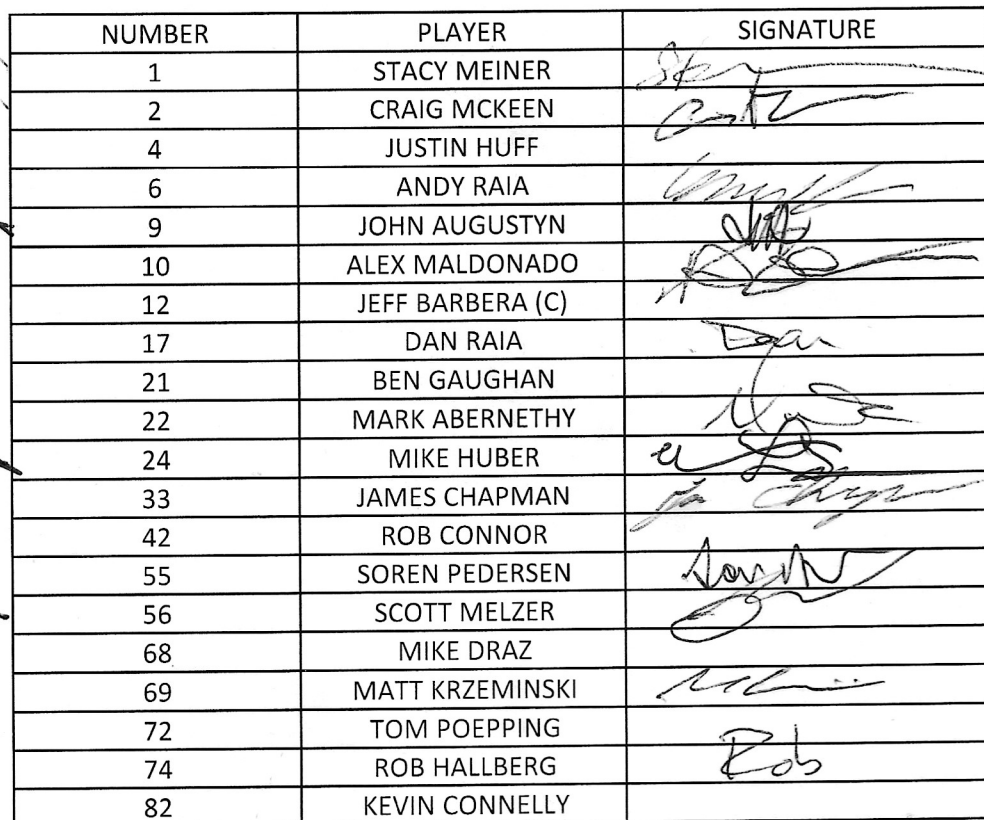 NUMBER PLAYER SIGNATURE
1 STACY MEINER
2 CRAIG MCKEEN
4 JUSTIN HUFF
6 ANDY RAIA
9 JOHN AUGUSTYN
10 ALEX MALDONADO
12 JEFF BARBERA (C)
17 DAN RAIA Dan
21 BEN GAUGHAN
22 MARK ABERNETHY
24 MIKE HUBER
33 JAMES CHAPMAN
42 ROB CONNOR
55 SOREN PEDERSEN
56 SCOTT MELZER
68 MIKE DRAZ
69 MATT KRZEMINSKI
72 TOM POEPPING
74 ROB HALLBERG Rob
82 KEVIN CONNELLY